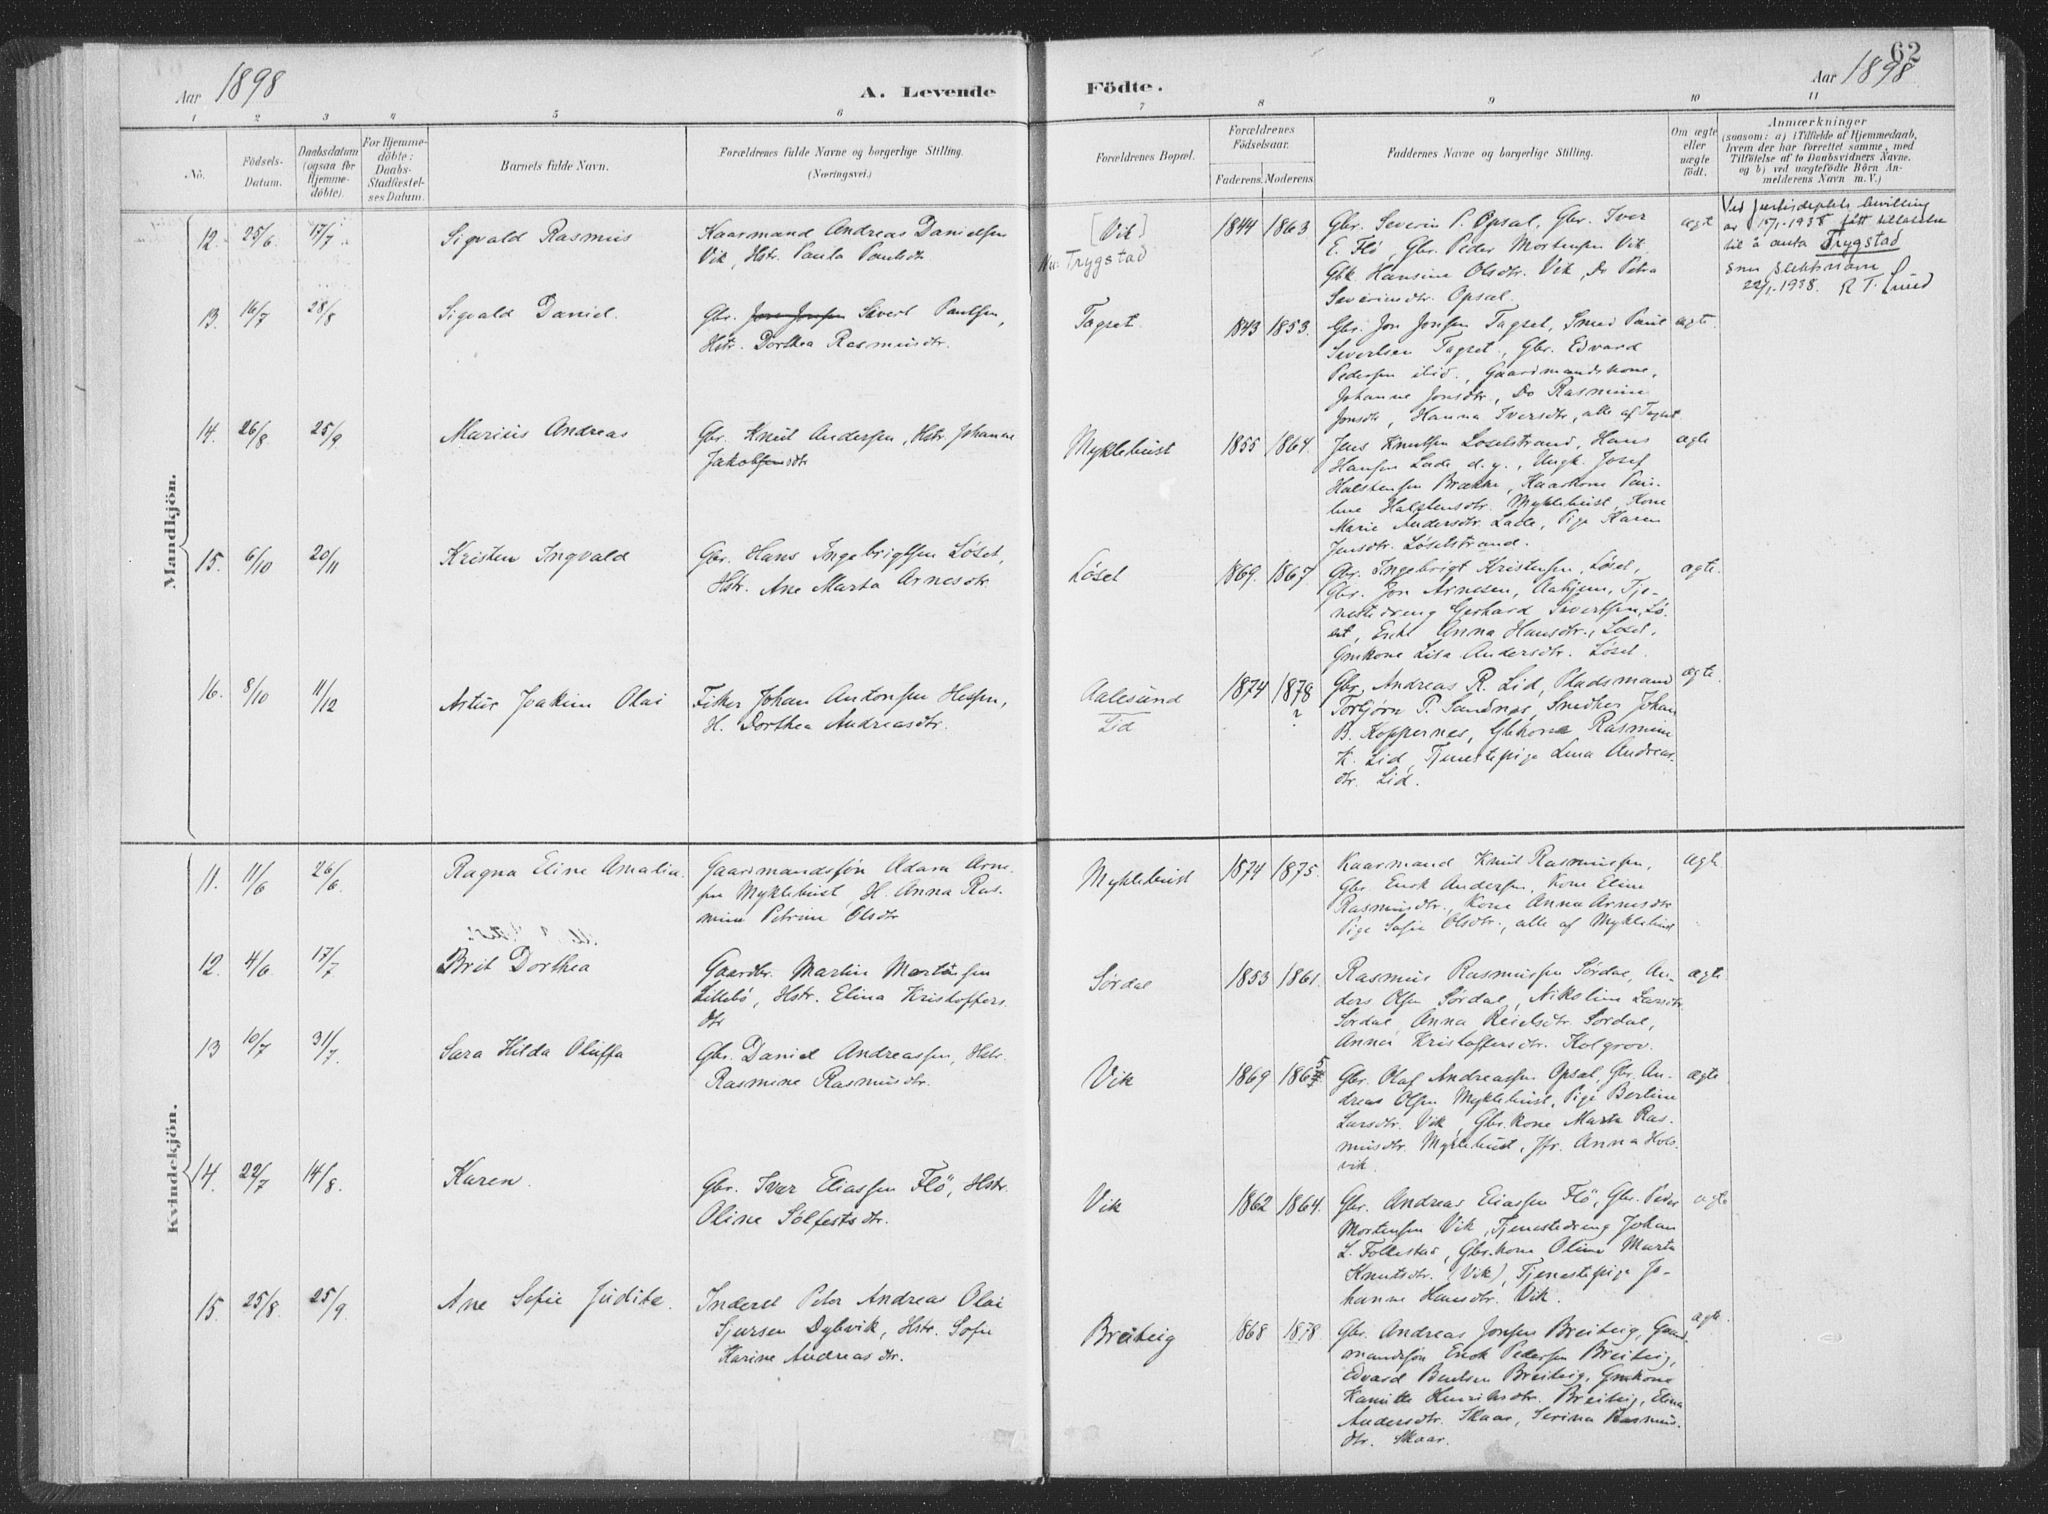 62
Aar 1898
A. Levende
Födte.
Aar 1898
1 2 3 4 5 6 7 8 9 10 11
No.
Födsels-
Datum.
Daabsdatum
(ogsaa for
Hjemme-
döbte).
For Hjemme-
döbte:
Daabs-
Stadfæstel-
ses Datum.
Barnets fulde Navn.
Forældrenes fulde Navne og borgerlige Stilling.
(Næringsvei.)
Forældrenes Bopæl.
Forældrenes
Födselsaar.
Faderens. Moderens.
Faddernes Navne og borgerlige Stilling.
Om ægte
eller
uægte
födt.
Anmærkninger
(saasom: a) i Tilfælde af Hjemmedaab,
hvem der har forrettet samme, med
Tilföielse af to Daabsvidners Navne,
og b) ved uægtefödte Börn An-
melderens Navn m. V.)
Mandkjön.
12. 25/6 17/7 Sigvald Rasmus
Kaarmand Andreas Danielsen
Vik, Hstr. Paula Paulsdtr.
[Vik]
Nu: Trygstad
1844 1863
Gbr. Severin P. Opsal, Gbr. Iver
E. Flö, Gbr. Peder Mortensen Vik
Gbk. Hansine Olsdtr. Vik, Do Petra
Severinsdtr. Opsal.
ægte
Ved Justisdeptets bevilling
av 15/1-1938 fått tillatelse
til å anta Trygstad
som slektsnavn
22/1-1938. R T. Lund
13. 16/7 28/8 Sigvald Daniel.
Gbr. Jon Jonsen Sivert Paulsen,
Hstr. Dorthea Rasmusdtr.
Tagset.
1843 1853.
Gbr. Jon Jonsen Tagset, Smed Paul
Sivertsen Tagset, Gbr. Edvard
Pedersen ibid., Gaardmandskone,
Johanne Jonsdtr, Do Rasmine
Jonsdtr, Hanna Iversdtr, alle af Tagset
ægte.
14. 26/8 25/9 Marius Andreas
Gbr. Knut Andersen, Hstr. Johanne
Jakobsensdtr
Myklebust
1855 1864.
Jens Knutsen Løsetstrand, Hans
Hansen Lade d.y., Ungk. Josef
Halstensen Brække, Kaarkone Pau-
line Halstensdtr. Myklebust, Kone
Marie Andersdtr. Lade, Pige Karen
Jensdtr. Løsetstrand.
ægte
15. 6/10 20/11 Kristen Ingvald
Gbr. Hans Ingebrigtsen Løset,
Hstr. Ane Marta Arnesdtr.
Løset
1869. 1867.
Gbr. Ingebrigt Kristensen, Løset,
Gbr. Jon Arnesen, Aahjem, Tje-
nestedreng Gerhard Sivertsen, Lø-
set, Enke Anna Hansdtr., Løset,
Gmkone Lisa Andersdtr. Løset.
ægte.
16. 8/10 11/12 Artur Joakim Olai
Fisker Johan Antonsen Hessen,
H. Dorthea Andreasdtr.
Aalesund
Lid
1874 1878
?
Gbr. Andreas R. Lid, Pladsmand
Torbjørn P. Sandnes, Snedker Johan
B. Koppernes, Gbkone Rasmine
K. Lid, Tjenestepige Lina Andreas-
dtr. Lid.
ægte.
Kvindekjön.
11. 11/6 26/6. Ragna Eline Amalia.
Gaardmandssøn Adam Arne-
sen Myklebust, H. Anna Ras-
mine Petrine Olsdtr
Myklebust
1874 1875.
Kaarmand Knut Rasmussen,
Gbr. Enok Andersen, Kone Eline
Rasmusdtr., Kone Anna Arnesdtr
Pige Sofie Olsdtr., alle af Myklebust
ægte
12. 4/6. 17/7 Brit Dorthea
Gaardbr. Martin Martinsen
Lillebø, Hstr. Elina Kristoffers-
dtr
Sørdal
1853 1861.
Rasmus Rasmussen Sørdal, An-
ders Olsen Sørdal, Nikoline Larsdtr.
Sørdal, Anna Reielsdtr. Sørdal,
Anna Kristoffersdtr. Kolgrov.
ægte
13 10/7 31/7. Sara Hilda Oluffa
Gbr. Daniel Andreassen, Hstr.
Rasmine Rasmusdtr.
Vik
1869 1865
Gbr. Olaf Andreassen Opsal, Gbr. An-
dreas Olsen Myklebust, Pige Bertine
Larsdtr. Vik, Gbr.kone Marta Ras-
musdtr. Myklebust, Jfr. Anna Hols-
vik.
ægte
14. 22/7 14/8. Karen.
Gbr. Iver Eliassen Flö, Hstr.
Oline Solfestsdtr.
Vik
1862 1864.
Gbr. Andreas Eliassen Flö, Gbr. Peder
Mortensen Vik, Tjenestedreng Johan
L. Follestad, Gbr.kone Oline Marta
Knutsdtr. (Vik), Tjenestepige Jo-
hanne Hansdtr. Vik.
ægte
15. 25/8. 25/9. Ane Sofie Judite.
Inderst Peter Andreas Olai
Sjursen Dybvik, Hstr. Sofie
Karine Andreasdtr.
Breiteig
1868 1878.
Gbr. Andreas Jonsen Breiteig, Gaard-
mandssøn Enok Pedersen Breiteig,
Edvard Bentsen Breiteig, Gmkone
Kamille Henriksdtr. Breiteig, Elina
Andersdtr. Skaar, Serina Rasmus-
dtr. Skaar.
ægte.